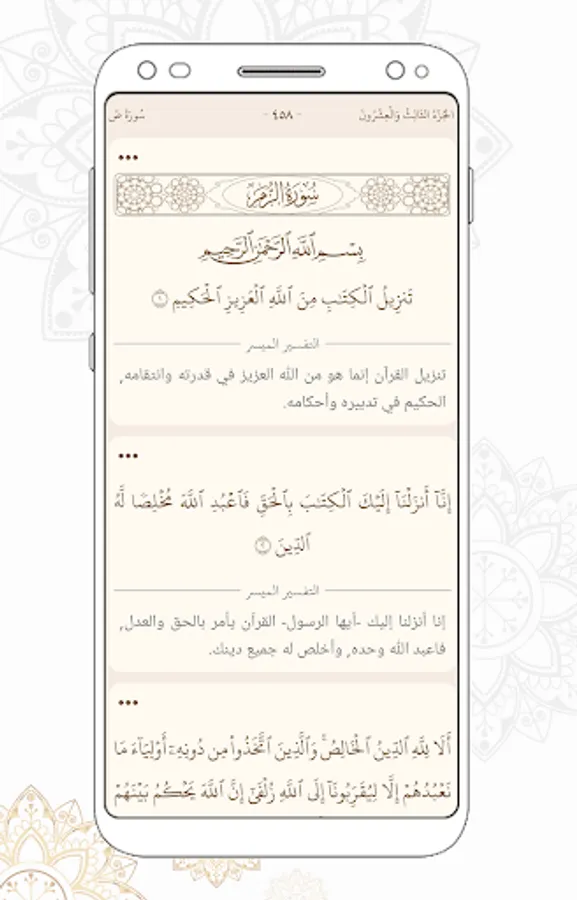 الجزء الثالث والعشرون - ٤٥٨ - سورة ص
سُورَةُ الزُّمَرِ
بِسْمِ ٱللَّهِ ٱلرَّحْمَٰنِ ٱلرَّحِيمِ
تَنزِيلُ ٱلْكِتَٰبِ مِنَ ٱللَّهِ ٱلْعَزِيزِ ٱلْحَكِيمِ ١
التفسير الميسر
تنزيل القرآن إنما هو من الله العزيز في قدرته وانتقامه,
الحكيم في تدبيره وأحكامه.
إِنَّآ أَنزَلْنَآ إِلَيْكَ ٱلْكِتَٰبَ بِٱلْحَقِّ فَٱعْبُدِ ٱللَّهَ مُخْلِصًا لَّهُ
ٱلدِّينَ ٢
التفسير الميسر
إنا أنزلنا إليك -أيها الرسول- القرآن يأمر بالحق والعدل,
فاعبد الله وحده, وأخلص له جميع دينك.
أَلَا لِلَّهِ ٱلدِّينُ ٱلْخَالِصُ ۚ وَٱلَّذِينَ ٱتَّخَذُوا۟ مِن دُونِهِۦٓ أَوْلِيَآءَ مَا
نَعْبُدُهُمْ إِلَّا لِيُقَرِّبُونَآ إِلَى ٱللَّهِ زُلْفَىٰٓ إِنَّ ٱللَّهَ يَحْكُمُ بَيْنَهُمْ